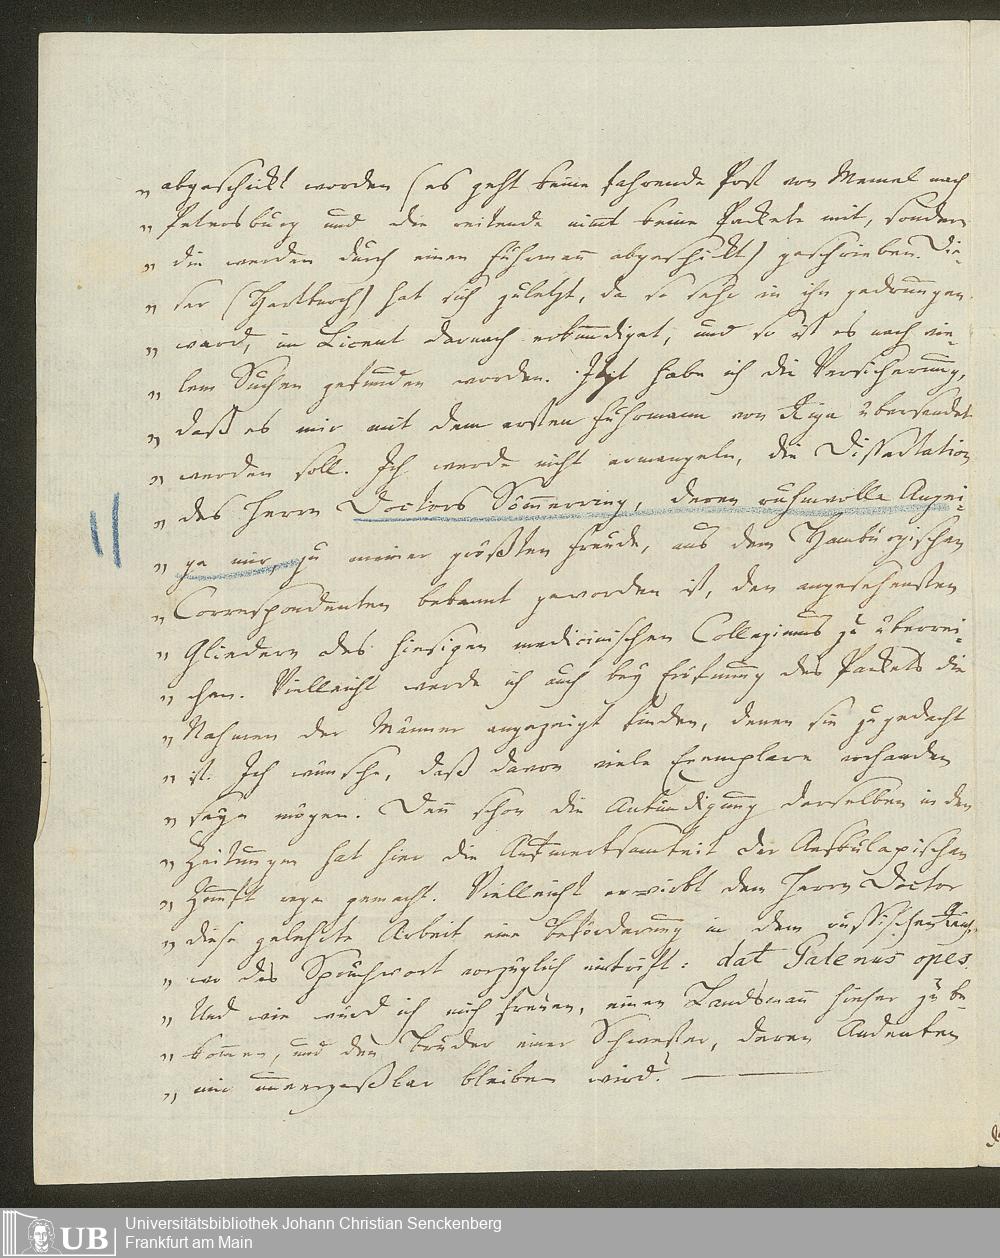 „ abgeschickt worden (es geht keine fahrende Post von Memel nach
„ Petersburg und die reitende nim̄t keine Packete mit, sondern
„ die werden durch einen Fuhrman̄ abgeschickt) geschrieben. Die-
„ ser (Hartknoch) hat sich zuletzt, da so sehr in ihn gedrungen
„ ward, im Licent darnach erkundiget, und so ist es nach vie-
„ lem Suchen gefunden worden. Jtzt habe ich die Versicherung,
„ daß es mir mit dem ersten Fuhrmann von Riga übersandt
„ werden soll. Ich werde nicht ermangeln, die Dissertation
„ des Herrn Doctors Sömmerring, deren ruhmvolle Anzei-
„ ge mir, zu meiner größten Freude, aus dem Hamburgischen
„ Correspondenten bekannt geworden ist, den angesehensten
„ Gliedern des hiesigen medicinischen Collegiums zu überrei-
„ chen. Vielleicht werde ich auch bey Eröfnung des Packets die
„ Nahmen der Männer angezeigt finden, denen sie zugedacht
„ ist. Ich wünsche, daß davon viele Exemplare vorhanden
„ seyn mögen. Den̄ schon die Ankündigung derselben in den
„ Zeitungen hat hier die Aufmerksamkeit der Aeskulapischen
„ Zunft rege gemacht. Vielleicht erwirbt dem Herrn Doctor
„ diese gelehrte Arbeit eine Beförderung in dem russischen Reich,
„ wo das Sprüchwort vorzüglich eintrift: dat Galenus opes.
„ Und wie würd ich mich freuen, einen Landsman̄ hieher zu be-
„ kom̄en, und den Bruder einer Schwester, deren Andenken
„ mir unvergeßbar bleiben wird. —
Universitätsbibliothek Johann Christian Senckenberg
UB Frankfurt am Main